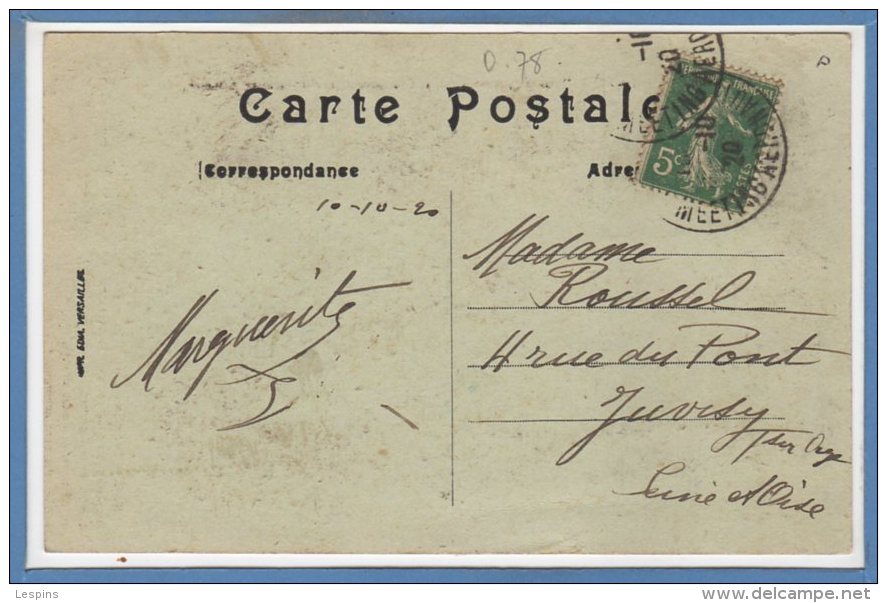 0.78
Carte Postale
Correspondance
10-10-20
Marguerite
Madame
Roussel
4 rue du Pont
Juvisy
sur Orge
Seine et Oise
IMP. EDIA. VERSAILLES
FRANÇAISE
POSTES
5c
-10
20
MEETING AERO
-10
20
MEETING
Lespins
delcampe.net